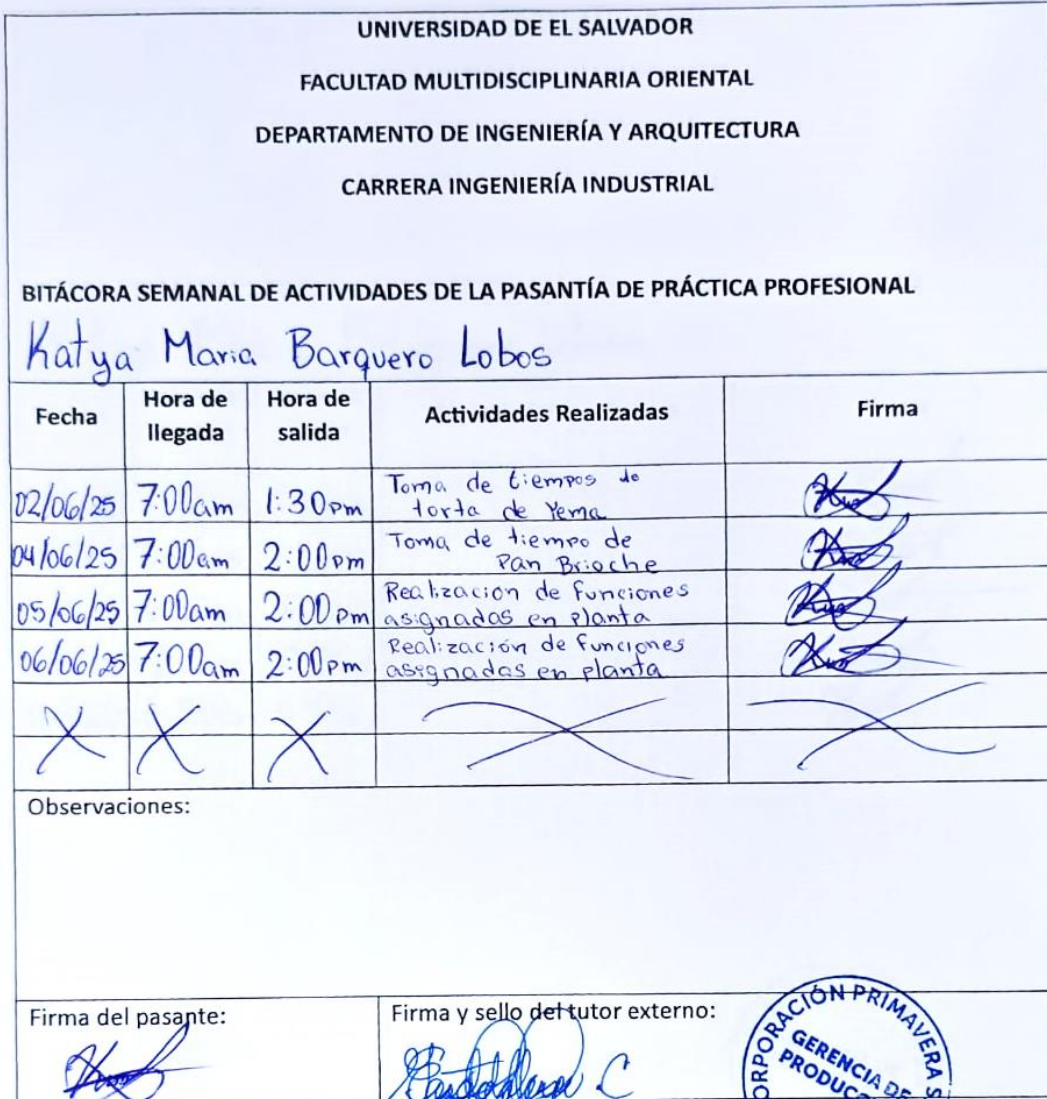 UNIVERSIDAD DE EL SALVADOR
FACULTAD MULTIDISCIPLINARIA ORIENTAL
DEPARTAMENTO DE INGENIERÍA Y ARQUITECTURA
CARRERA INGENIERÍA INDUSTRIAL
BITÁCORA SEMANAL DE ACTIVIDADES DE LA PASANTÍA DE PRÁCTICA PROFESIONAL
Katya Maria Barquero Lobos
Fecha Hora de llegada Hora de salida Actividades Realizadas Firma
02/06/25 7:00am 1:30pm Toma de tiempos de
torta de Yema
04/06/25 7:00am 2:00pm Toma de tiempo de
Pan Brioche
05/06/25 7:00am 2:00pm Realizacion de funciones
asignadas en planta
06/06/25 7:00am 2:00pm Realización de funciones
asignadas en planta
Observaciones:
Firma del pasante: Firma y sello del tutor externo:
CORPORACIÓN PRIMAVERA S
GERENCIA DE